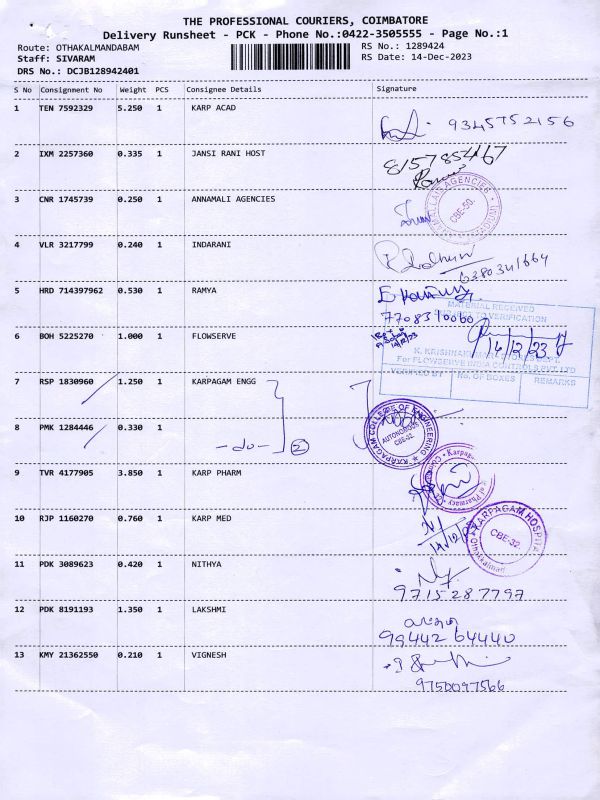 THE PROFESSIONAL COURIERS, COIMBATORE
Delivery Runsheet - PCK - Phone No.:0422-3505555 - Page No.:1
Route: OTHAKALMANDABAM RS No.: 1289424
Staff: SIVARAM RS Date: 14-Dec-2023
DRS No.: DCJB128942401
S No Consignment No Weight PCS Consignee Details Signature
1 TEN 7592329 5.250 1 KARP ACAD
9345752156
2 IXM 2257360 0.335 1 JANSI RANI HOST
8157854167
3 CNR 1745739 0.250 1 ANNAMALI AGENCIES
CBE-50.
4 VLR 3217799 0.240 1 INDARANI
6380341664
5 HRD 714397962 0.530 1 RAMYA
7708310060
MATERIAL RECEIVED
SUBJECT TO VERIFICATION
6 BOH 5225270 1.000 1 FLOWSERVE
14/12/23
For FLOWSERVE INDIA CONTROLS PVT. LTD
VERIFIED BY NO. OF BOXES REMARKS
7 RSP 1830960 1.250 1 KARPAGAM ENGG
8 PMK 1284446 0.330 1 -do- 2
KARPAGAM COLLEGE OF ENGINEERING
AUTONOMOUS
CBE-32.
9 TVR 4177905 3.850 1 KARP PHARM
10 RJP 1160270 0.760 1 KARP MED
KARPAGAM HOSPITAL
CBE-32.
11 PDK 3089623 0.420 1 NITHYA
9715287797
12 PDK 8191193 1.350 1 LAKSHMI
9944264440
13 KMY 21362550 0.210 1 VIGNESH
9750097566